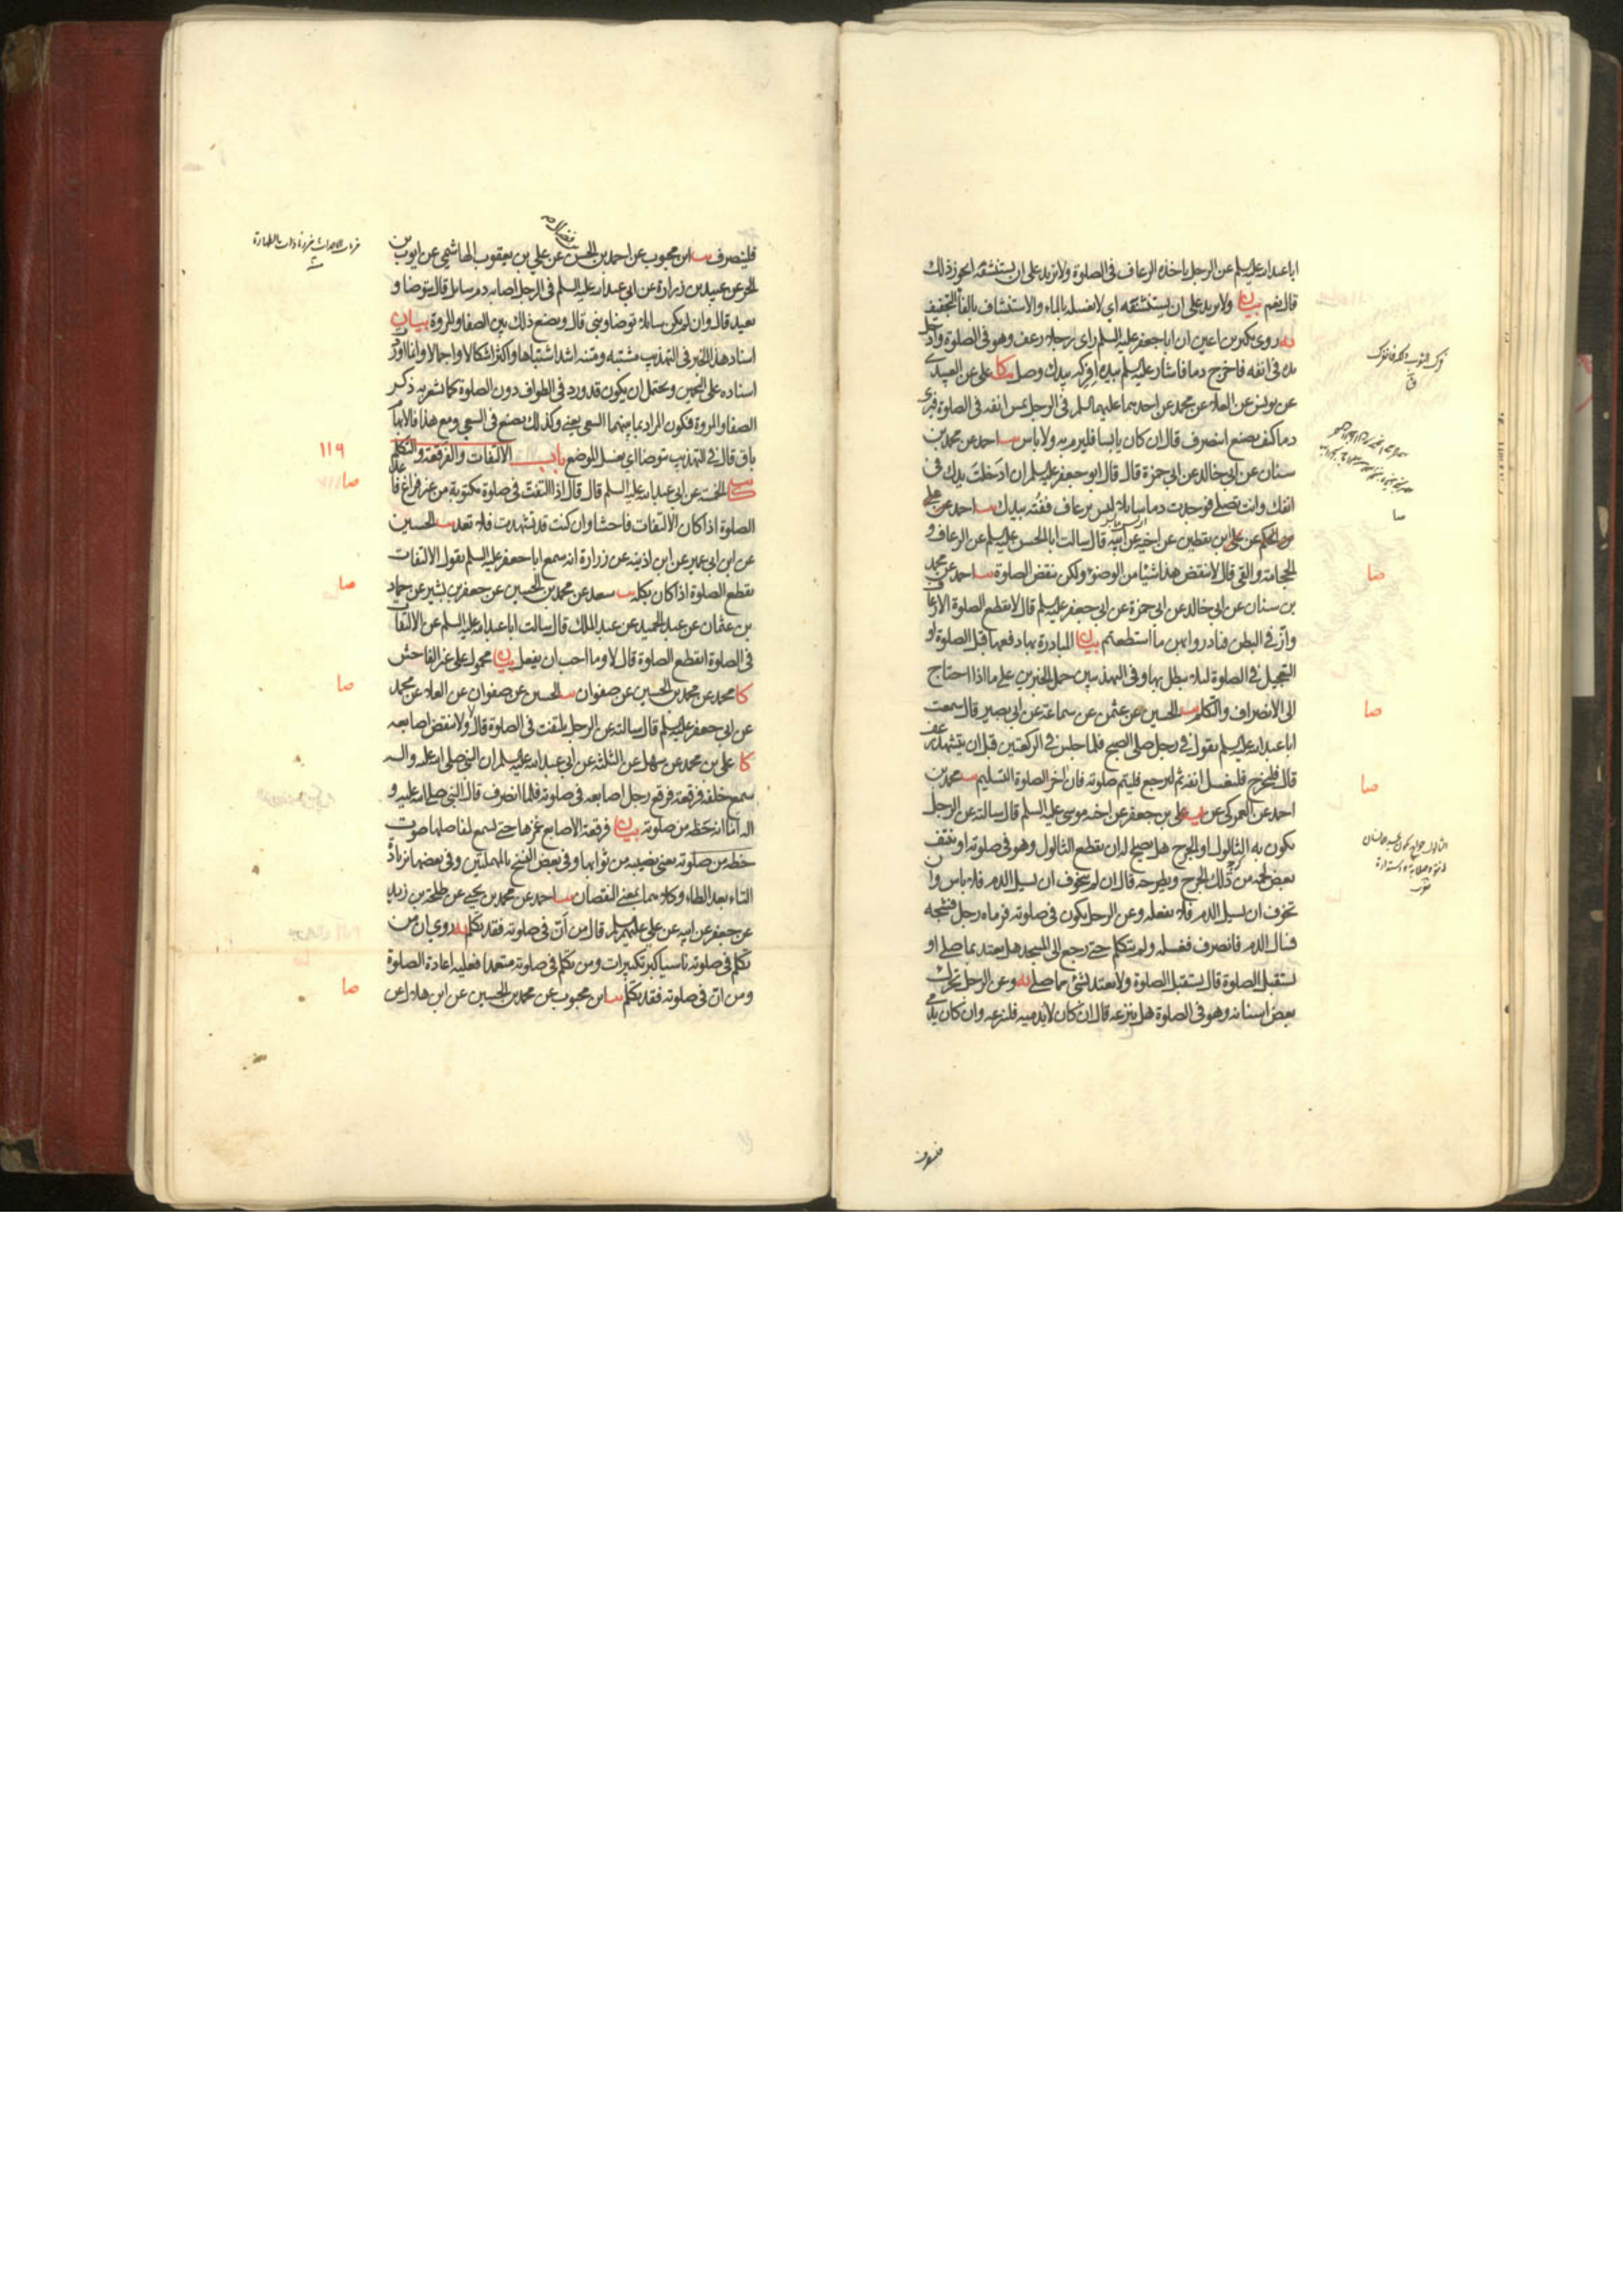 ابا عبد الله عليه السلم عن الرجل ياخذه الرعاف في الصلوة ولا يزيد على ان يستنشفه ايجوز ذلك
قال نعم بيان ولا يزيد على ان يستنشفه اي لا يغسله بالماء والاستنشاف بالفاء التجفيف
يه روى بكير بن اعين ان ابا جعفر عليه السلم راى رجلا رعف وهو في الصلوة وادخل
يده في انفه فاخرج دما فاشار عليه السلم بيده افركه بيدك وصل كا علي عن العبيدي
عن يونس عن العلا عن محمد عن احدهما عليهما السلم في الرجل يمس انفه في الصلوة فيرى
دما كيف يصنع اينصرف قال ان كان يابسا فليرم به ولا باس يب احمد عن محمد بن
سنان عن ابي خالد عن ابي حمزة قال قال ابو جعفر عليه السلم ان ادخلت يدك في
انفك وانت تصلي فوجدت دما سايلا ليس برعاف ففته بيدك يب احمد عن علي
بن الحكم عن علي بن يقطين عن اخيه عن ابيه قال سالت ابا الحسن عليه السلم عن الرعاف و
الحجامة والقى قال لا ينقض هذا شيئا من الوضوء ولكن ينقض الصلوة يب احمد عن محمد
بن سنان عن ابي خالد عن ابي حمزة عن ابي جعفر عليه السلم قال لا يقطع الصلوة الا رعاف
واز في البطن فبادروا بهن ما استطعتم بيان المبادرة بها دفعها قبل الصلوة او
التعجيل في الصلوة لئلا تبطل بها وفي التهذيبين حمل الخبرين على ما اذا احتاج
الى الانصراف والتكلم يب الحسين عن عثمن عن سماعة عن ابي بصير قال سمعت
ابا عبد الله عليه السلم يقول في رجل صلى الصبح فلما جلس في الركعتين قبل ان يتشهد رعف
قال فليخرج فليغسل انفه ثم ليرجع فليتم صلوته فان اخر الصلوة التسليم يب محمد بن
احمد عن العمركي عن علي بن جعفر عن اخيه موسى عليه السلم قال سالته عن الرجل
يكون به الثالول او الجرح هل يصلح له ان يقطع الثالول وهو في صلوته او ينتف
بعض لحمه من ذلك الجرح ويطرحه قال ان لم يتخوف ان يسيل الدم فلا باس وان
تخوف ان يسيل الدم فلا يفعله وعن الرجل يكون في صلوته فرماه رجل فشجه
فسال الدم فانصرف فغسله ولم يتكلم حتى رجع الى المسجد هل يعتد بما صلى او
يستقبل الصلوة قال يستقبل الصلوة ولا يعتد بشيء مما صلى يه وعن الرجل تحرك
بعض اسنانه وهو في الصلوة هل ينزعه قال ان كان لا يدميه فلينزعه وان كان يدمى
صا
صا
صا
صا
فلينصرف
فلينصرف يب ابن محبوب عن احمد بن الحسن عن علي بن يعقوب الهاشمي عن ايوب بن
الحر عن عبيد بن زرارة عن ابي عبد الله عليه السلم في الرجل اصابه دم سايل قال يتوضا و
يعيد قال وان لم يكن سايلا توضا وبنى قال ويصنع ذلك بين الصفا والمروة بيان
اسناد هذا الخبر في التهذيب مشتبه ومتنه اشد اشتباها واكثر اشكالا واجمالا وانما اورد
اسناده على التخمين ويحتمل ان يكون قد ورد في الطواف دون الصلوة كما يشعر به ذكر
الصفا والمروة فيكون المراد بما بينهما السعي يعني وكذلك يصنع في السعي ومع هذا فالابهام
باق قال في التهذيب توضا اي يغسل الموضع باب الالتفات والفرقعة والتكلم
كا الخمسة عن ابي عبد الله عليه السلم قال قال اذا التفت في صلوة مكتوبة من غير فراغ فاعد
الصلوة اذا كان الالتفات فاحشا وان كنت قد تشهدت فلا تعد يب الحسين
عن ابن ابي عمير عن ابن اذينة عن زرارة انه سمع ابا جعفر عليه السلم يقول الالتفات
يقطع الصلوة اذا كان بكله يب سعد عن محمد بن الحسين عن جعفر بن بشير عن حماد
بن عثمان عن عبد الحميد عن عبد الملك قال سالت ابا عبد الله عليه السلم عن الالتفات
في الصلوة ايقطع الصلوة قال لا وما احب ان يفعل بيان محمول على غير الفاحش
كا محمد عن محمد بن الحسين عن صفوان يب الحسين عن صفوان عن العلا عن محمد
عن ابي جعفر عليه السلم قال سالته عن الرجل يلتفت في الصلوة قال لا ولا ينقض اصابعه
كا علي بن محمد عن سهل عن الثلثة عن ابي عبد الله عليه السلم ان النبي صلى الله عليه واله
سمع خلفه فرقعة فرقع رجل اصابعه في صلوته فلما انصرف قال النبي صلى الله عليه و
اله اما انه حظه من صلوته بيان فرقعة الاصابع غمزها حتى يسمع لمفاصلها صوت
حظه من صلوته يعني نصيبه من ثوابها وفي بعض النسخ بالمهملتين وفي بعضها بزيادة
التاء بعد الطاء وكلاهما بمعنى النقصان يب احمد عن محمد بن يحيى عن طلحة بن زيد
عن جعفر عن ابيه عن علي عليهم السلم قال من ان في صلوته فقد تكلم يه روي ان من
تكلم في صلوته ناسيا كبر تكبيرات ومن تكلم في صلوته متعمدا فعليه اعادة الصلوة
ومن ان في صلوته فقد تكلم يب ابن محبوب عن محمد بن الحسين عن ابن هلال عن
١١٩
صا
صا
صا
صا